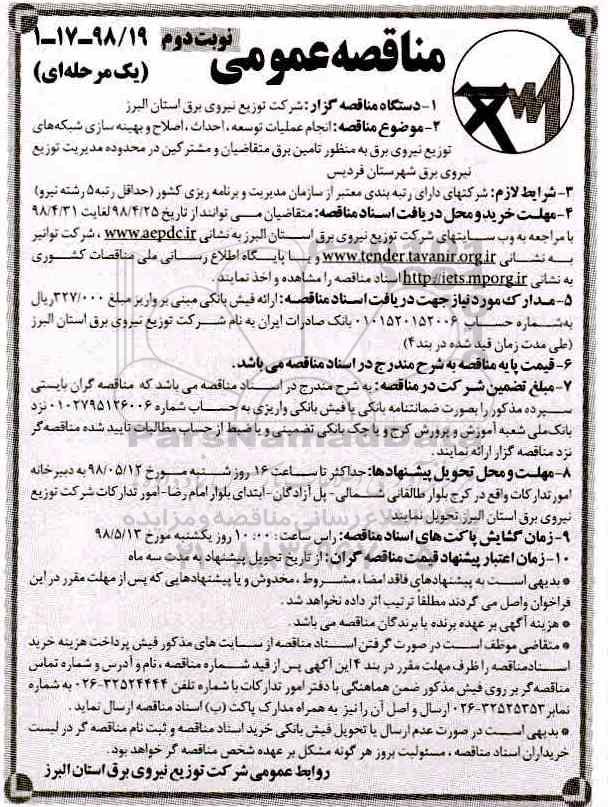 مناقصه عمومی
نوبت دوم
۱-۱۷-۹۸/۱۹
(یک مرحله‌ای)
۱- دستگاه مناقصه گزار: شرکت توزیع نیروی برق استان البرز
۲- موضوع مناقصه: انجام عملیات توسعه، احداث، اصلاح و بهینه سازی شبکه‌های
توزیع نیروی برق به منظور تامین برق متقاضیان و مشترکین در محدوده مدیریت توزیع
نیروی برق شهرستان فردیس
۳- شرایط لازم: شرکتهای دارای رتبه بندی معتبر از سازمان مدیریت و برنامه ریزی کشور (حداقل رتبه ۵ رشته نیرو)
۴- مهلت خرید و محل دریافت اسناد مناقصه: متقاضیان می توانند از تاریخ ۹۸/۴/۲۵ لغایت ۹۸/۴/۳۱
با مراجعه به وب سایتهای شرکت توزیع نیروی برق استان البرز به نشانی www.aepdc.ir، شرکت توانیر
به نشانی www.tender.tavanir.org.ir و یا پایگاه اطلاع رسانی ملی مناقصات کشوری
به نشانی http://iets.mporg.ir اسناد مناقصه را مشاهده و اخذ نمایند.
۵- مدارک مورد نیاز جهت دریافت اسناد مناقصه: ارائه فیش بانکی مبنی بر واریز مبلغ ۳۲۷/۰۰۰ ریال
به شماره حساب ۰۱۰۱۵۲۰۱۵۲۰۰۶ بانک صادرات ایران به نام شرکت توزیع نیروی برق استان البرز
(طی مدت زمان قید شده در بند ۴)
۶- قیمت پایه مناقصه به شرح مندرج در اسناد مناقصه می باشد.
۷- مبلغ تضمین شرکت در مناقصه: به شرح مندرج در اسناد مناقصه می باشد که مناقصه گران بایستی
سپرده مذکور را بصورت ضمانتنامه بانکی یا فیش بانکی واریزی به حساب شماره ۰۱۰۲۷۹۵۱۲۶۰۰۶ نزد
بانک ملی شعبه آموزش و پرورش کرج و یا چک بانکی تضمینی و یا ضبط از حساب مطالبات تایید شده مناقصه گر
نزد مناقصه گزار ارائه نمایند.
۸- مهلت و محل تحویل پیشنهادها: حداکثر تا ساعت ۱۶ روز شنبه مورخ ۹۸/۰۵/۱۲ به دبیرخانه
امور تدارکات واقع در کرج بلوار طالقانی شمالی- پل آزادگان- ابتدای بلوار امام رضا- امور تدارکات شرکت توزیع
نیروی برق استان البرز تحویل نمایند.
۹- زمان گشایش پاکت های اسناد مناقصه: راس ساعت: ۱۰:۰۰ روز یکشنبه مورخ ۹۸/۵/۱۳
۱۰- زمان اعتبار پیشنهاد قیمت مناقصه گران: از تاریخ تحویل پیشنهاد به مدت سه ماه
* بدیهی است به پیشنهادهای فاقد امضا، مشروط، مخدوش و یا پیشنهادهایی که پس از مهلت مقرر در این
فراخوان واصل می گردند مطلقا ترتیب اثر داده نخواهد شد.
* هزینه آگهی بر عهده برنده یا برندگان مناقصه می باشد.
* متقاضی موظف است در صورت گرفتن اسناد مناقصه از سایت های مذکور فیش پرداخت هزینه خرید
اسناد مناقصه را ظرف مهلت مقرر در بند ۴ این آگهی پس از قید شماره مناقصه، نام و آدرس و شماره تماس
مناقصه گر بر روی فیش مذکور ضمن هماهنگی با دفتر امور تدارکات با شماره تلفن ۳۲۵۲۴۴۴۴-۰۲۶ به شماره
نمابر ۳۲۵۲۵۳۵۳-۰۲۶ ارسال و اصل آن را نیز به همراه مدارک پاکت (ب) اسناد مناقصه ارسال نماید.
* بدیهی است در صورت عدم ارسال یا تحویل فیش بانکی خرید اسناد مناقصه و ثبت نام مناقصه گر در لیست
خریداران اسناد مناقصه، مسئولیت بروز هر گونه مشکل بر عهده شخص مناقصه گر خواهد بود.
روابط عمومی شرکت توزیع نیروی برق استان البرز